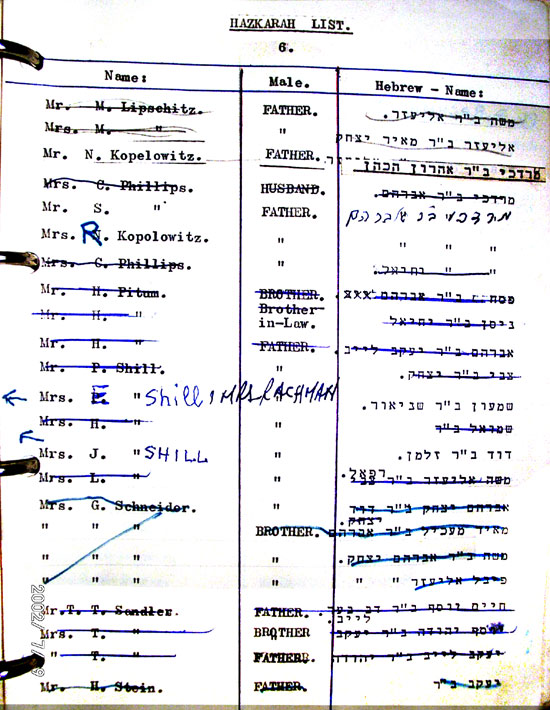 HAZKARAH LIST.
6.
Name: Male. Hebrew - Name:
Mr. M. Lipschitz. FATHER. משה ב"ר אליעזר.
Mrs. M. " " אליעזר ב"ר מאיר יצחק
Mr. N. Kopelowitz. FATHER. מרדכי ב"ר אהרון הכהן
Mrs. C. Phillips. HUSBAND. מרדכי ב"ר אברהם.
Mr. S. " FATHER.
Mrs. R. Kopolowitz. " " " "
Mrs. C. Phillips. " " " יחיאל.
Mr. H. Pitum. BROTHER. פסח ב"ר אברהם xxx.
Mr. H. " Brother in-Law. ניסן ב"ר יחיאל
Mr. H. " FATHER. אברהם ב"ר יעקב לייב.
Mr. P. Shill. " צבי ב"ר יצחק.
Mrs. E. " Shill, MRS RACHMAN " שמעון ב"ר שניאור.
Mrs. H. " " שמואל ב"ר
Mrs. J. " SHILL " דוד ב"ר זלמן.
רפאל.
Mrs. L. " " משה אליעזר ב"ר צבי
Mrs. G. Schneider. " אברהם יצחק ב"ר דוד
יצחק.
" " " BROTHER. מאיר מעכיל ב"ר אברהם
" " " " משה ב"ר אברהם יצחק.
" " " " פייבל אליעזר " "
Mr. T. T. Sandler. FATHER. חיים יוסף ב"ר דב בער.
לייב.
Mrs. T. " BROTHER יוסף יהודה ב"ר יעקב
" T. " FATHER. יעקב לייב ב"ר יהודה
Mr. H. Stein. FATHER. יעקב ב"ר